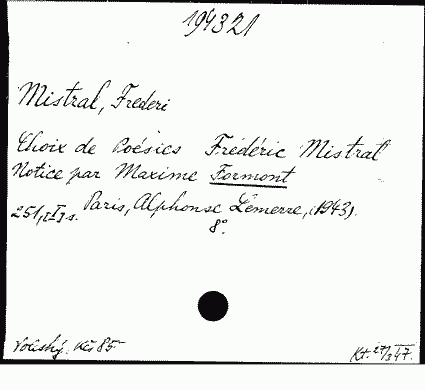 194321
Mistral, Frederi
Choix de Poésies Frédéric Mistral
Notice par Maxime Formont
251, [I] s. Paris, Alphonse Lemerre, (1943).
8°.
Kčs 85
Kt. 27/3 47.